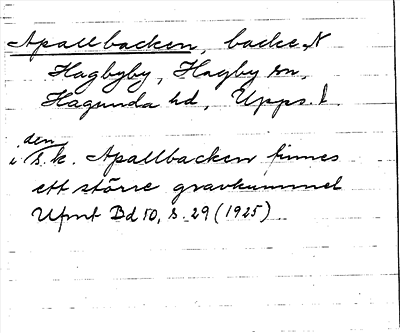 Apallbacken, backe N
Hagbyby, Hagby sn,
Hagunda hd, Upps. l.
i den s.k. Apallbacken finnes
ett större gravkummel
Ufmt Bd 10, s. 29 (1925)